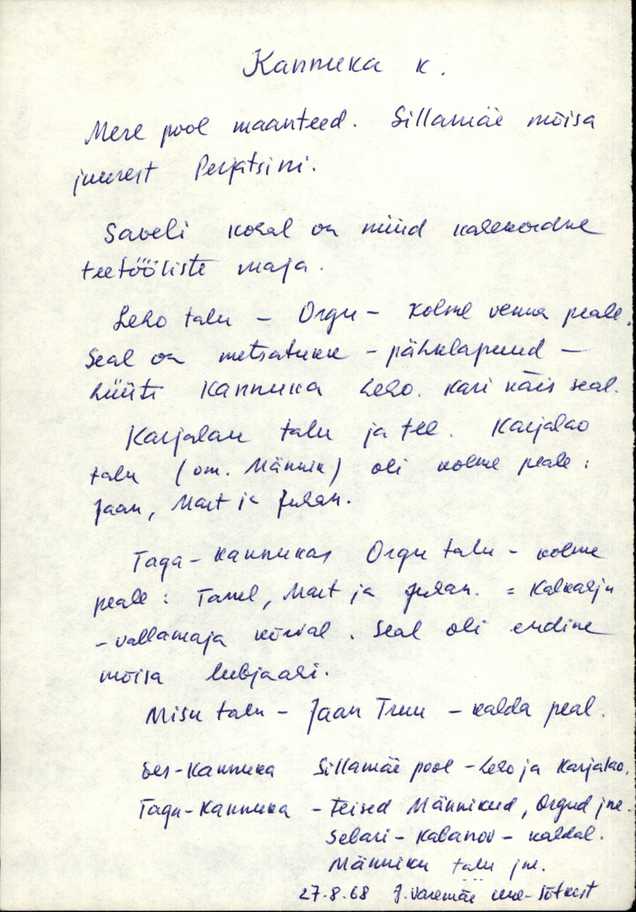 Kannuka k.
Mere pool maanteed. Sillamäe mõisa
juurest Perjatsini.
Saveli kohal on nüüd kahekordne
teetööliste maja.
Leho talu – Orgu – kolme venna peale.
Seal on metsatukk – pähklapuud –
hüüti Kannuka Leho. Kari käis seal.
Karjalau talu ja tee. Karjalao
talu (om. Männik) oli kolme peale:
Jaan, Mart ja Juhan.
Taga-Kannukas Orgu talu – kolme
peale: Tanel, Mart ja Juhan. = Kalkarju
– vallamaja kõrval. Seal oli endine
mõisa lubjaahi.
Misu talu – Jaan Truu – kalda peal.
Ees-Kannuka Sillamäe pool – Leho ja Karjalao.
Taga-Kannuka – teised Männikud, Orgud jne.
Kabanov – kaldal.
Männiku talu jne.
27.8.68 J. Varemäe